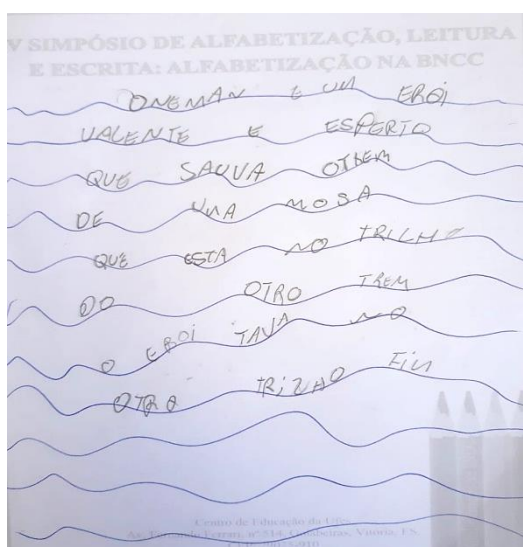 V SIMPÓSIO DE ALFABETIZAÇÃO, LEITURA
E ESCRITA: ALFABETIZAÇÃO NA BNCC
ONEMAN E UM EROI
VALENTE E ESPERTO
QUE SAUVA OTREM
DE UMA MOSA
QUE ESTA NO TRILHO
DO OTRO TREM
O EROI TAVA NO
OTRO TRILHO FIM
Centro de Educação da Ufes
Av. Fernando Ferrari, nº 514, Goiabeiras, Vitória, ES,